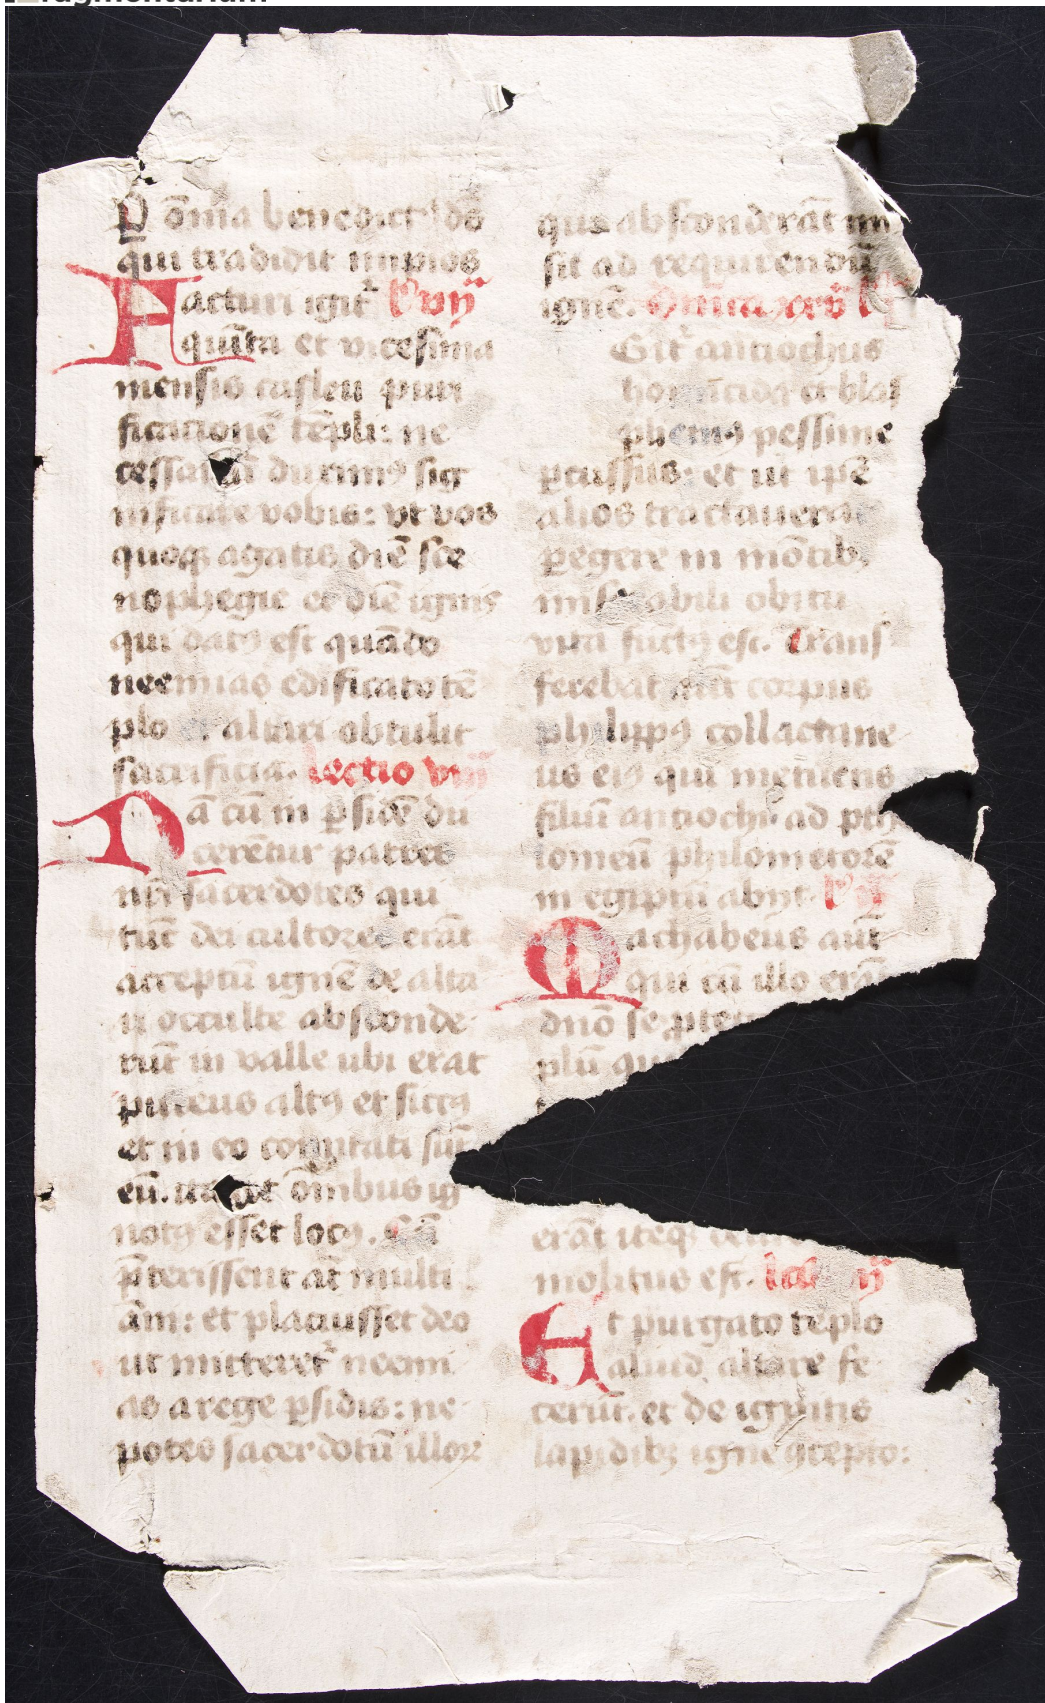 P om̄ia benedict9 d̄s
qui tradidit impios
Facturi igit᷑ l̄c̄ vij
quīta et vicesima
mensis casleu puri
ficationē tēpli: ne
cessariū duxim9 sig
nificare vobis: vt vos
quoq; agatis diē sce
nophegie et diē ignis
qui dat9 est quādo
neemias edificato tē
plo et altari obtulit
sacrificia. lectio viij
Nā cū in p̱sidē du
cerētur patres
nr̄i sacerdotes qui
tūc dei cultores erāt
acceptū ignē de alta
ri occulte absconde
rūt in valle ubi erat
puteus alt9 et sicc9
et in eo contutati sūt
eū. ita ut om̄ibus ig
not9 esset loc9. Cū
p̄terissent āt multi
āni: et placuisset deo
ut mitteret᷑ neemi
as a rege p̱sidis: ne
potes sacerdotū illoꝝ
qui absconderāt mi
sit ad requirendū
ignē. Dn̄ica
Git᷑ antiochus
homicida et blas
phem9 pessime
p̱cussus: et ut ip̄e
alios tractauerat
p̱egere in mōtib;
miserabili obitu
vita fuct9 est. Trans
ferebat aūt corpus
philipp9 collactane
us ei9 qui metuens
filiū antiochi. ad pth
lomeū philometorē
in egiptū abijt. l̄c̄
Machabeus aūt
qui cū illo erāt
dn̄o se ptete
plū qui
erāt iteq;
molitus est.
Et purgato tēplo
aliud altare fe
cerūt. et de ignitis
lapidib; igne ꝯcepto: